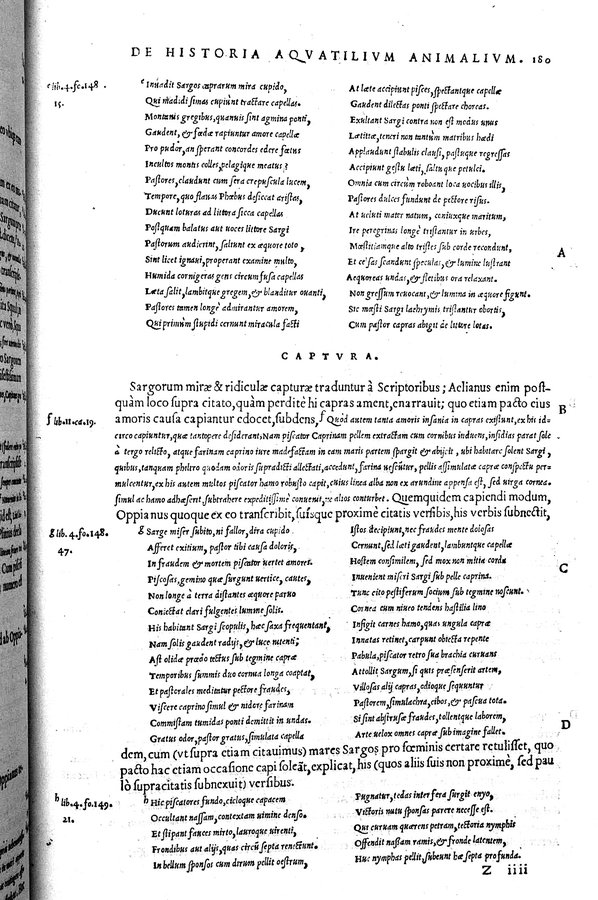 DE HISTORIA AQVATILIVM ANIMALIVM. 180
e lib. 4. fo. 148.
15.
e Inuadit Sargos caprarum mira cupido,
Qui madidi simas cupiunt tractare capellas.
Montanis gregibus, quanuis sint agmina ponti,
Gaudent, & fœdæ rapiuntur amore capellæ
Pro pudor, an sperant concordes edere fœtus
Incultos montis colles, pelagique meatus?
Pastores, claudunt cum sera crepuscula lucem,
Tempore, quo flauas Phœbus desiccat aristas,
Ducunt loturas ad littora sicca capellas
Postquam balatus aut uoces littore Sargi
Pastorum audierint, saliunt ex æquore toto,
Sint licet ignaui, properant examine multo,
Humida cornigeras gens circumfusa capellas
Læta salit, lambitque gregem, & blanditur ouanti,
Pastores tamen longè admirantur amorem,
Qui primùm stupidi cernunt miracula facti
At læte accipiunt pisces, spectantque capellæ
Gaudent dilectas ponti spectare choreas.
Exultant Sargi contra non est modus unus
Lætitiæ, teneri non tantùm matribus hædi
Applaudunt stabulis clausi, pastuque regressas
Accipiunt gestu læti, saltuque petulci.
Omnia cum circùm reboant loca uocibus illis,
Pastores dulces fundunt de pectore risus.
At ueluti mater natum, coniuxque maritum,
Ire peregrinas longè tristantur in urbes,
Mœstitiamque alto tristes sub corde recondunt,
Et celsas scandunt speculas, & lumine lustrant
Aequoreas undas, & fletibus ora relaxant.
Non gressum reuocant, & lumina in æquore figunt.
Sic mæsti Sargi lachrymis tristantur obortis,
Cum pastor capras abigit de litore lotas.
A
CAPTVRA.
Sargorum miræ & ridiculæ capturæ traduntur à Scriptoribus; Aelianus enim post-
quàm loco supra citato, quàm perditè hi capras ament, enarrauit; quo etiam pacto eius
B
f lib. 11. ca. 19.
amoris causa capiantur edocet, subdens, f Quòd autem tanta amoris insania in capras existunt, ex his id-
circo capiuntur, quæ tantopere desiderant; Nam piscator Caprinam pellem extractam cum cornibus induens, insidias parat sole
à tergo relicto, atque farinam caprino iure madefactam in eam maris partem spargit & abijcit, ubi habitare solent Sargi,
quibus, tanquam philtro quodam odoris supradicti allectati, accedunt, farina uescuntur, pellis assimulatæ capræ conspectu per-
mulcentur, ex his autem multos piscator hamo robusto capit, cuius linea alba non ex arundine appensa est, sed uirga cornea.
simul ac hamo adhæserit, subtrahere expeditissimè conuenit, ne alios conturbet. Quemquidem capiendi modum,
Oppianus quoque ex eo transcribit, susisque proximè citatis versibus, his verbis subnectit,
g lib. 4. fo. 148.
47.
g Sarge miser subito, ni fallor, dira cupido
Afferet exitium, pastor tibi causa doloris,
In fraudem & mortem piscator uertet amores.
Piscosas, gemino quæ surgunt uertice, cautes,
Non longè à terra distantes æquore paruo
Coniectat clari fulgentes lumine solis.
His habitant Sargi scopulis, hæc saxa frequentant,
Nam solis gaudent radijs, & luce nitenti;
Ast olidæ prædo tectus sub tegmine capræ
Temporibus summis duo cornua longa coaptat,
Et pastorales meditatur pectore fraudes,
Viscere caprino simul & nidore farinam
Commistam tumidas ponti demittit in undas.
Gratus odor, pastor gratus, simulata capella
Istos decipiunt, nec fraudes mente dolosas
Cernunt, sed lati gaudent, lambuntque capellæ
Hostem consimilem, sed mox non mitia corda
Inuenient miseri Sargi sub pelle caprina.
Tunc cito pestiferum socium sub tegmine noscunt.
Cornea cum niueo tendens hastilia lino
Infigit carnes hamo, quas ungula capræ
Innatas retinet, carpunt obiecta repente
Pabula, piscator retro sua brachia curuans
Attollit Sargum, si quis præsenserit artem,
Villosas alij capras, odioque sequuntur
Pastorem, simulachra, cibos, & pascua tota.
Si sint abstrusæ fraudes, tollentque laborem,
Arte uelox omnes capræ sub imagine fallet.
C
D
dem, cum (vt supra etiam citauimus) mares Sargos pro fœminis certare retulisset, quo
pacto hac etiam occasione capi soleāt, explicat, his (quos aliis suis non proximè, sed pau
lò supracitatis subnexuit) versibus.
h lib. 4. fo. 149.
21.
h Hic piscatores fundo, cicloque capacem
Occultant nassam, contextam uimine denso.
Et stipant fauces mirto, lauroque uirenti,
Frondibus aut alijs, quas circùm septa renectunt.
In bellum sponsos cum dirum pellit oestrum,
Pugnatur, tedas inter fera surgit enyo,
Victoris nutu sponsas parere necesse est.
Qui curuam quærens petram, tectoria nymphis
Offendit nassam ramis, & fronde latentem,
Huc nymphas pellit, subeunt hæ septa profunda.
Z iiii